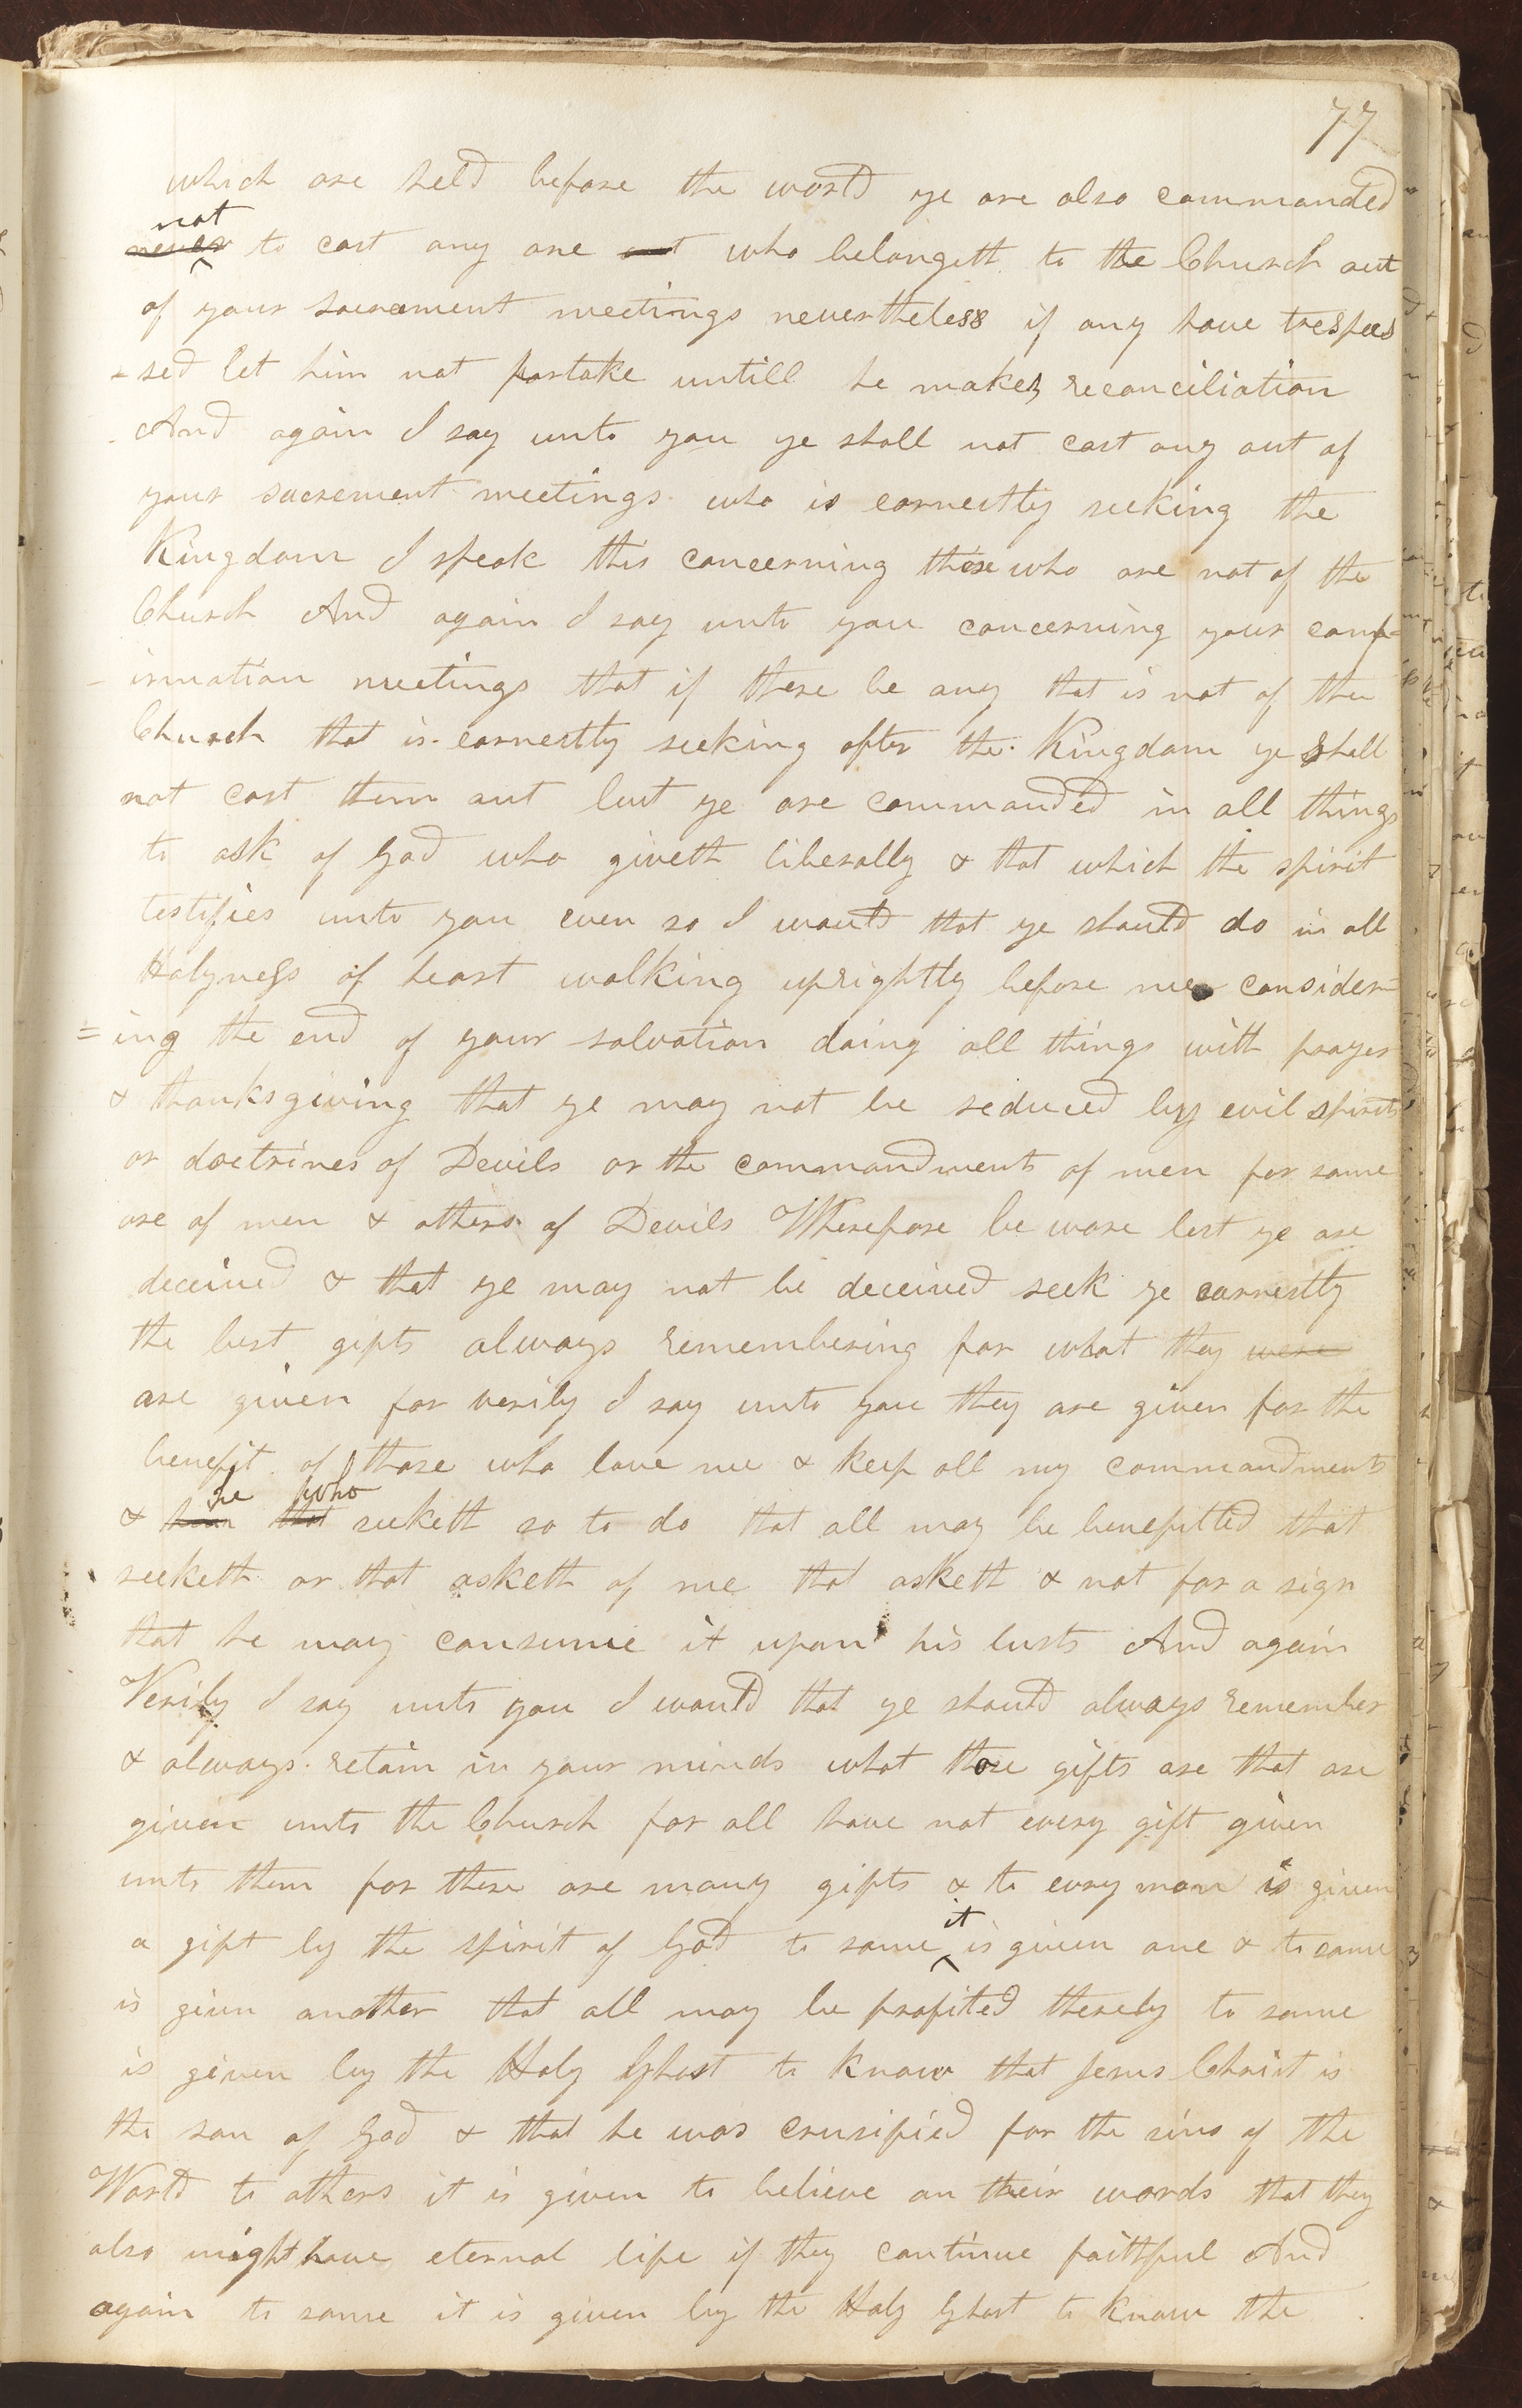 77
which are held before the world ye are also commanded
not
never to cast any one out who belongeth to the Church out
of your sacrament meetings nevertheless if any have trespas
-sed let him not partake untill he makes reconciliation
And again I say unto you ye shall not cast any out of
your sacrement meetings who is earnestly seeking the
Kingdom I speak this concerning those who are not of the
Church And again I say unto you concerning your conf-
-irmation meetings that if there be any that is not of the
Church that is earnestly seeking after the Kingdom ye shall
not cast them out but ye are commanded in all things
to ask of God who giveth liberally & that which the spirit
testifies unto you even so I would that ye should do in all
Holyness of heart walking uprightly before me consider=
=ing the end of your salvation doing all things with prayer
& thanksgiving that ye may not be seduced by evil spirits
or doctrines of Devils or the commandments of men for some
are of men & others of Devils Wherefore be ware lest ye are
deceived & that ye may not be deceived seek ye earnestly
the best gifts always remembering for what they were
are given for verily I say unto you they are given for the
benefit of those who love me & keep all my commandments
he who
& him that seeketh so to do that all may be benefitted that
seeketh or that asketh of me that asketh & not for a sign
that he may consume it upon his lusts And again
Verily I say unto you I would that ye should always remember
& always retain in your minds what those gifts are that are
given unto the Church for all have not every gift given
unto them for there are many gifts & to evry man is given
it
a gift by the spirit of God to some is given one & to some
is given another that all may be profited thereby to some
is given by the Holy Ghost to know that Jesus Christ is
the son of God & that he was crusified for the sins of the
World to others it is given to believe on their words that they
also might have eternal life if they continue faithful And
again to some it is given by the Holy Ghost to know the